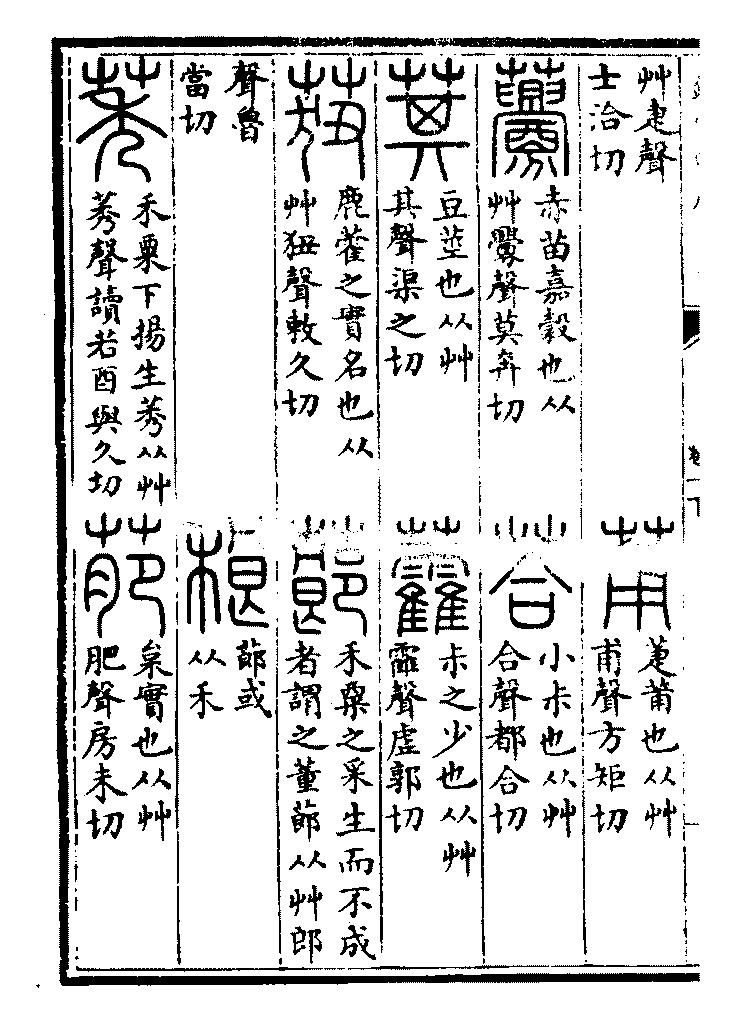 艸疌聲
士洽切
莆
萐莆也从艸
甫聲方矩切
虋
赤苗嘉穀也从
艸釁聲莫奔切
荅
小尗也从艸
合聲都合切
萁
豆莖也从艸
其聲渠之切
𧆑
尗之少也从艸
靃聲虛郭切
鹿藿之實名也从
艸狃聲敕久切
蓈
禾粟之采生而不成
者謂之董蓈从艸郎
聲魯
當切
稂
蓈或
从禾
莠
禾粟下揚生莠从艸
莠聲讀若酉與久切
萉
枲實也从艸
肥聲房未切